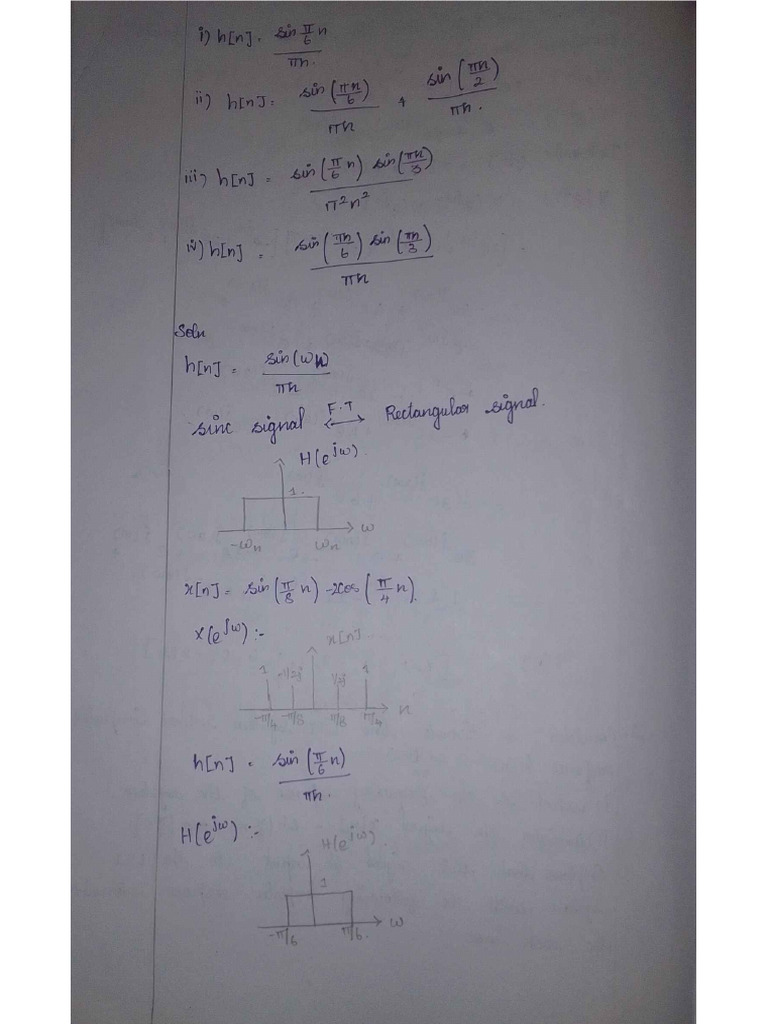 i) h[n] = sin π/6 n / πn.
ii) h[n] = sin(πn/6) / πn + sin(πn/2) / πn.
iii) h[n] = sin(π/6 n) sin(πn/3) / π²n²
iv) h[n] = sin(πn/6) sin(πn/3) / πn
Soln
h[n] = sin(ωn) / πn
sinc signal F.T ↔ Rectangular signal.
H(e^jω)
1.
-ωn ωn ω
x[n] = sin(π/8 n) - 2cos(π/4 n).
X(e^jω) :-
x[n]
1 -1/2j 1/2j 1
-π/4 -π/8 π/8 π/4 n
h[n] = sin(π/6 n) / πn.
H(e^jω) :-
H(e^jω)
1
-π/6 π/6. ω